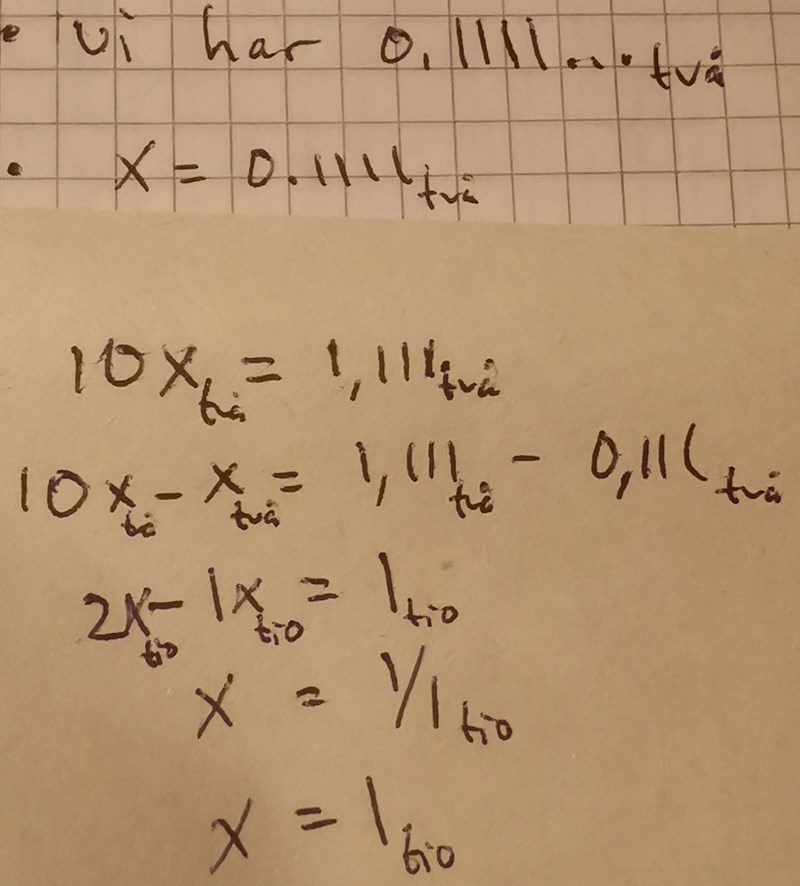 • Vi har 0,1111... två
• X = 0.1111 två
10X två = 1,111 två
10x två - x två = 1,111 två - 0,111 två
2x tio - 1x tio = 1 tio
X = 1/1 tio
X = 1 tio